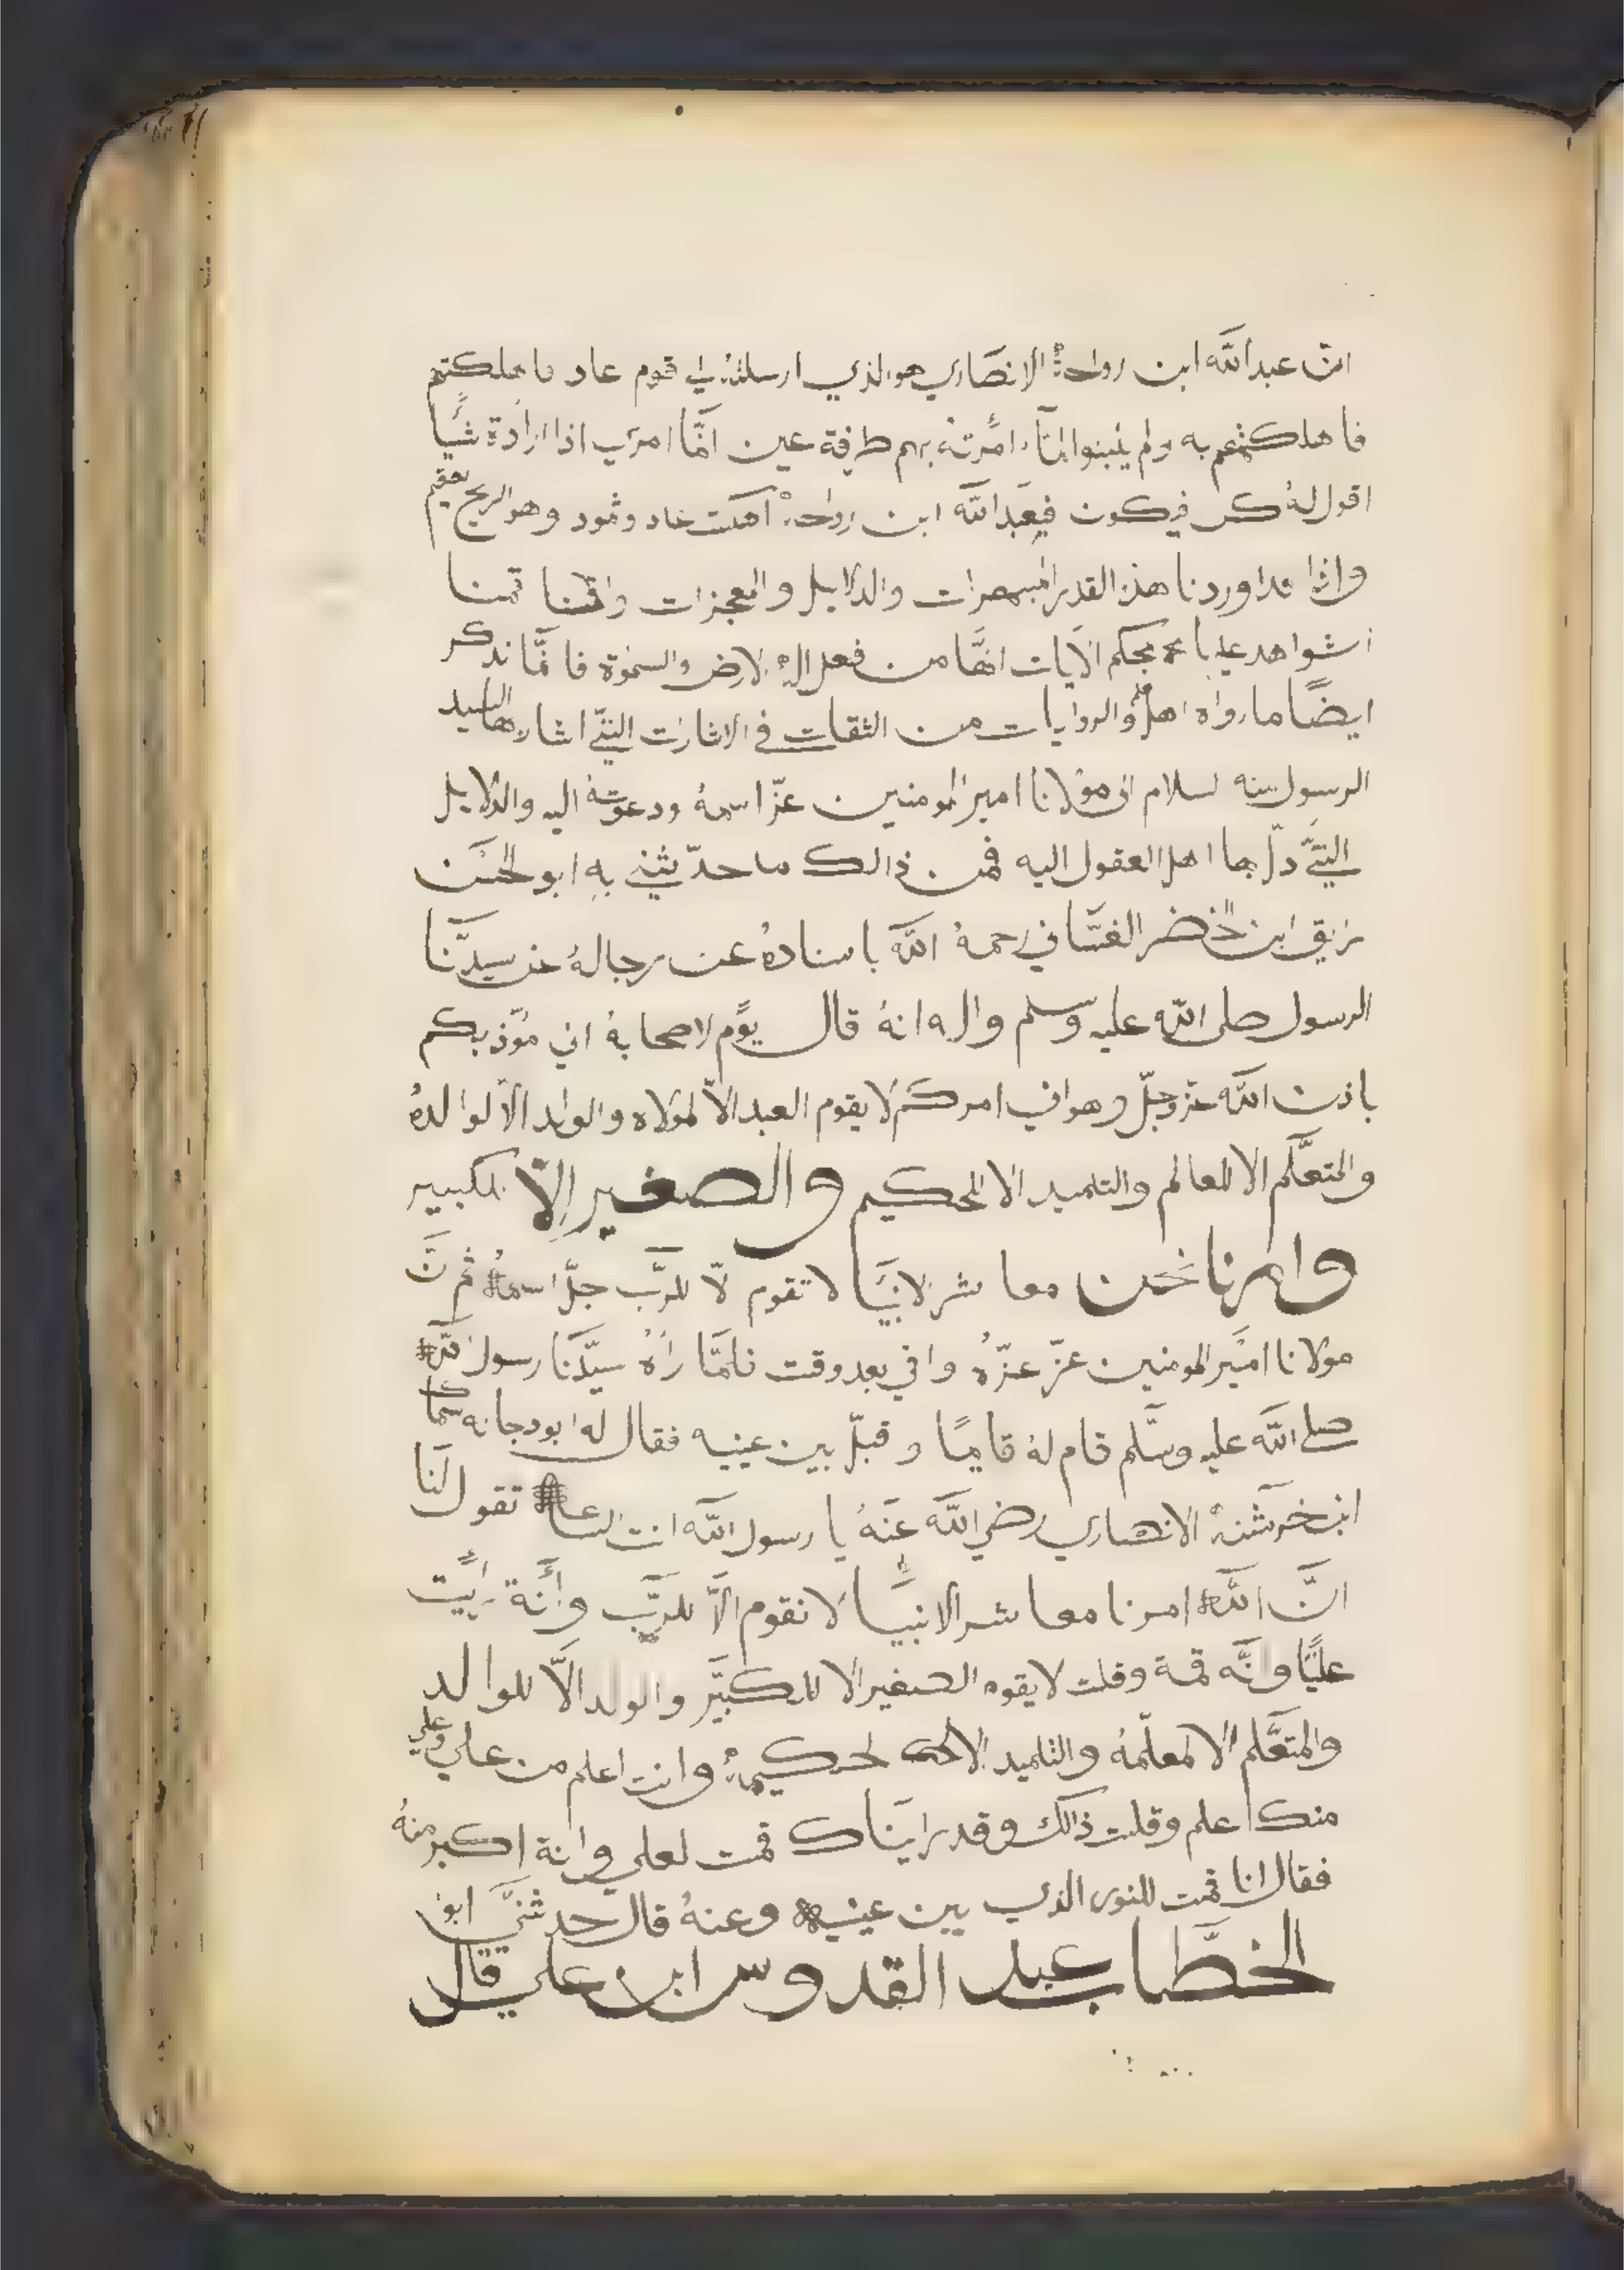 ان عبد الله ابن رواحة الانصاري هو الذي ارسلته الى قوم عاد
فاهلكتهم به ولم يثبتوا لما امرته بهم طرفة عين انما امري اذا ارادة شيًا
اقول له كن فيكون فعبد الله ابن رواحة اهلكت عاد وثمود وهو الريح العقيم
واذا قد اوردنا هذا القدر والدلايل والمعجزات واقمنا
شواهد بمحكم الايات انها من فعل اله الارض والسموة فانما نذكر
ايضًا ما رواه اهل الروايات من الثقات في الاشارت التي اشار بها السيد
الرسول منه السلام الى مولانا امير المومنين عز اسمه ودعوته اليه والدلايل
التي دل بها اهل العقول اليه فمن ذالك ما حدّثني به ابو الحسن
رزيق ابن الخضر الغسّاني رحمهُ الله باسنادهُ عن رجالهُ عن سيدنا
الرسول صلى الله عليه وسلم واله انهُ قال يوم لاصحابهُ اني مؤذبكم
باذن الله عز وجلّ وهو اني امركم لا يقوم العبد الاّ لمولاه والولد الاّ لوالدهُ
والمتعلّم الا للعالم والتلميد الا للحكيم والصغير الاّ للكبير
وامرنا نحن معاشر الانبيا لا نقوم الاّ للرّب جلّ اسمهُ ثم انَّ
مولانا امير المومنين عزّ عزّهُ وافي بعد وقت فلمّا راهُ سيّدنا رسول الله
صلى الله عليه وسلّم قام لهُ قايمًا وقبلّ بين عينيه فقال له ابو دجانه سماك
ابن خرشنهْ الانصاري رضي الله عنهُ يا رسول الله انت تقول لنا
انَّ الله امرنا معاشر الانبيا لا نقوم الاّ للرّب وانة رايت
عليًا وانّه قمة وقلت لا يقوم الصغير الا للكبيّر والولد الاّ للوالد
والمتعّلم الا لمعلّمهُ والتلميد الا لحكيمهُ وانت اعلم من علي وعلي
منك اعلم وقلت ذالك وقد رايناك قمت لعلي وانة اكبر منهُ
فقال انا قمت للنور الذي بين عينيه وعنهُ قال حدثني ابو
الخطّاب عبد القدوس ابن علي قال